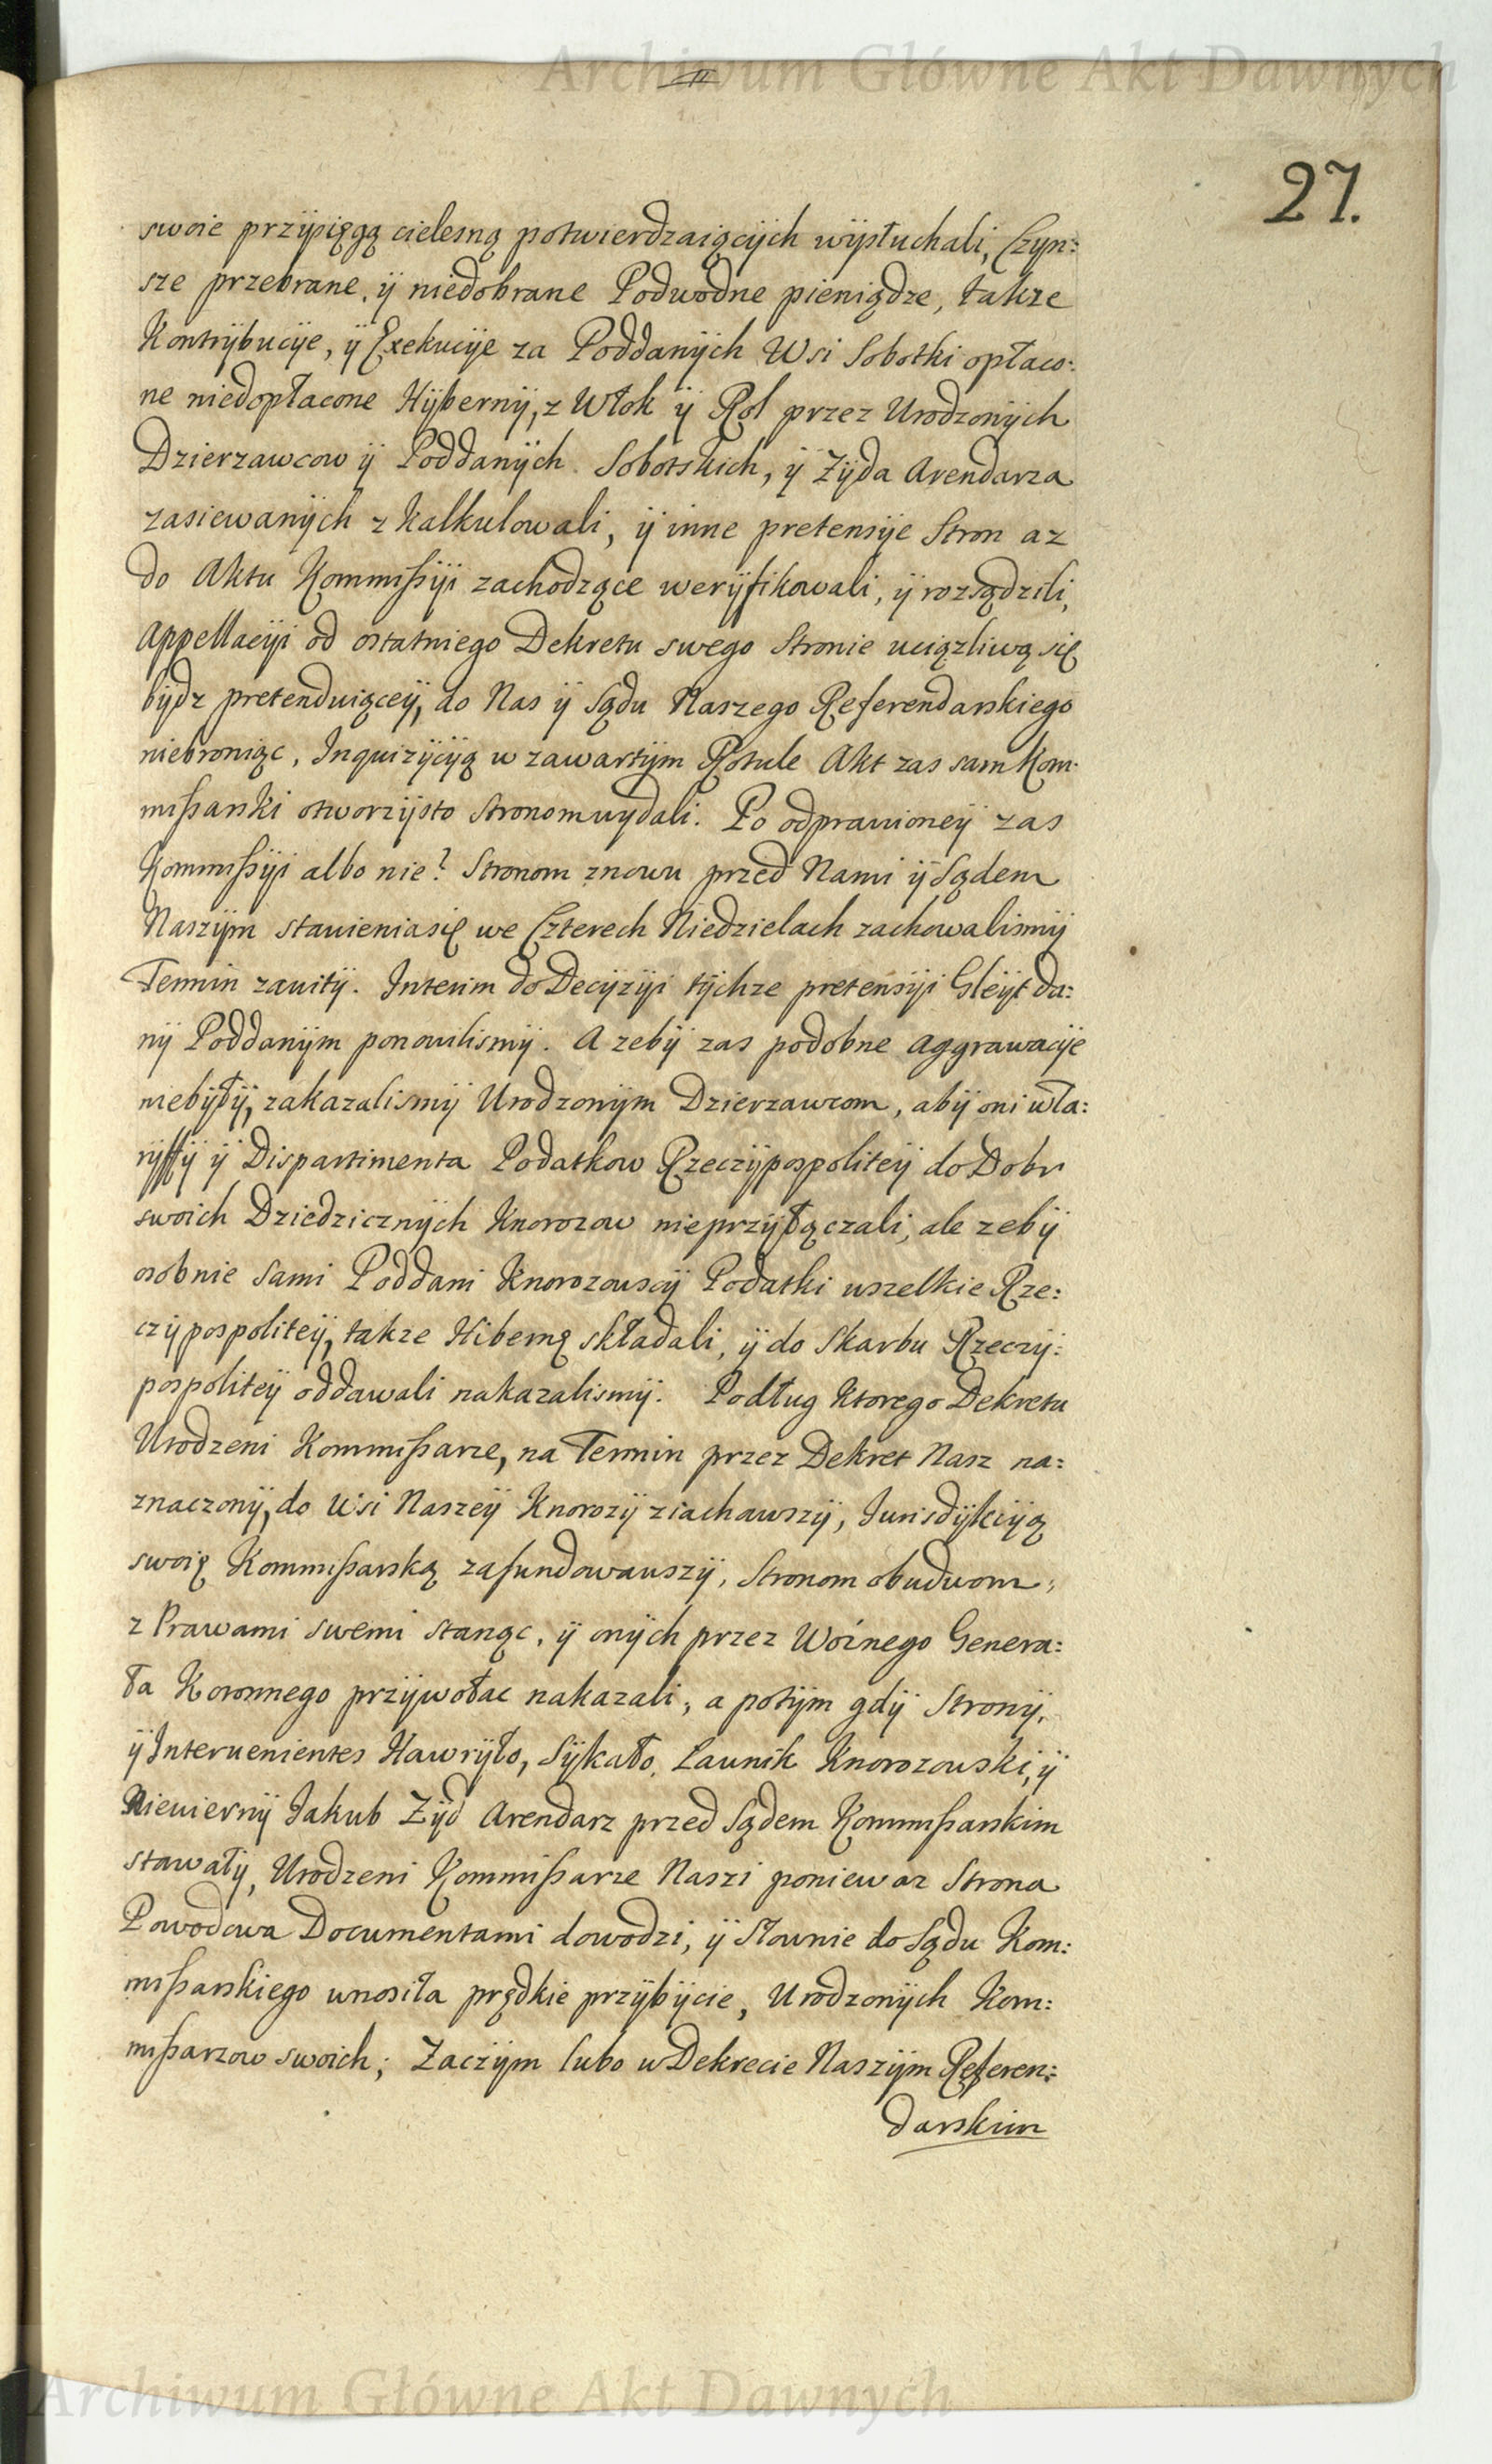 Archiwum Główne Akt Dawnych
27.
swoie przÿsięgą cielesną potwierdzaiącÿch wÿsłuchali, Czÿn:
sze przebrane, ÿ niedobrane Podwodne pieniądze, takze
Kontrÿbucÿe, ÿ Exekucÿe za Poddanÿch Wsi Sobotki opłaco:
ne niedopłacone Hÿbernÿ, z Włok ÿ Rol przez Urodzonÿch
Dzierzawcow ÿ Poddanÿch Sobotskich, ÿ Zÿda Arendarza
zasiewanÿch z kalkulowali, ÿ inne pretensÿe Stron az
do Aktu Kommißÿi zachodzące werÿfikowali, ÿ rozsądzili,
Appellacÿi od ostatniego Dekretu swego Stronie uciązliwą się
bÿdz pretenduiąceÿ, do Nas ÿ Sądu Naszego Referendarskiego
niebroniąc, Inquizÿcÿą w zawartÿm Rotule Akt zas sam Kom:
mißarski otworzÿsto Stronom wydali. Po odprawioneÿ zas
Kommißÿi albo nie? Stronom znowu przed Nami ÿ Sądem
Naszÿm stawienia się we Czterech Niedzielach zachowalismÿ
Termin zawitÿ. Interim do Decÿzÿi tÿchze pretensÿi Gleÿt da:
nÿ Poddanÿm ponowilismÿ. A zebÿ zas podobne aggrawacÿe
niebÿłÿ, zakazalismÿ Urodzonÿm Dzierzawcom, abÿ oni w Ta:
rÿffÿ ÿ Dispartimenta Podatkow Rzeczÿpospoliteÿ do Dobr
swoich Dziedzicznÿch Knorozow nieprzÿłączali, ale zebÿ
osobnie sami Poddani Knorozowscÿ Podatki wszelkie Rze:
czÿpospoliteÿ, takze Hibernę składali, ÿ do Skarbu Rzeczÿ:
pospoliteÿ oddawali nakazalismÿ. Podług ktorego Dekretu
Urodzeni Kommißarze, na Termin przez Dekret Nasz na:
znaczonÿ, do Wsi Naszeÿ Knorozÿ ziachawszÿ, Iurisdÿkcÿą
swoię Kommißarską zafundowawszÿ, Stronom obudwom,
z Prawami swemi stanąc, ÿ onÿch przez Woźnego Genera:
ła Koronnego przÿwołac nakazali, a potÿm gdÿ Stronÿ,
ÿ Intervenientes Hawrÿło, Sÿkało, Ławnik Knorozowski, ÿ
Niewiernÿ Iakub Zÿd Arendarz przed Sądem Kommißarskim
stawałÿ, Urodzeni Kommißarze Naszi poniewaz Strona
Powodowa Documentami dowodzi, ÿ Słownie do Sądu Kom:
mißarskiego wnosiła prędkie przÿbÿcie, Urodzonÿch Kom:
mißarzow swoich; Zaczÿm lubo w Dekrecie Naszÿm Referen:
darskim
Archiwum Główne Akt Dawnych